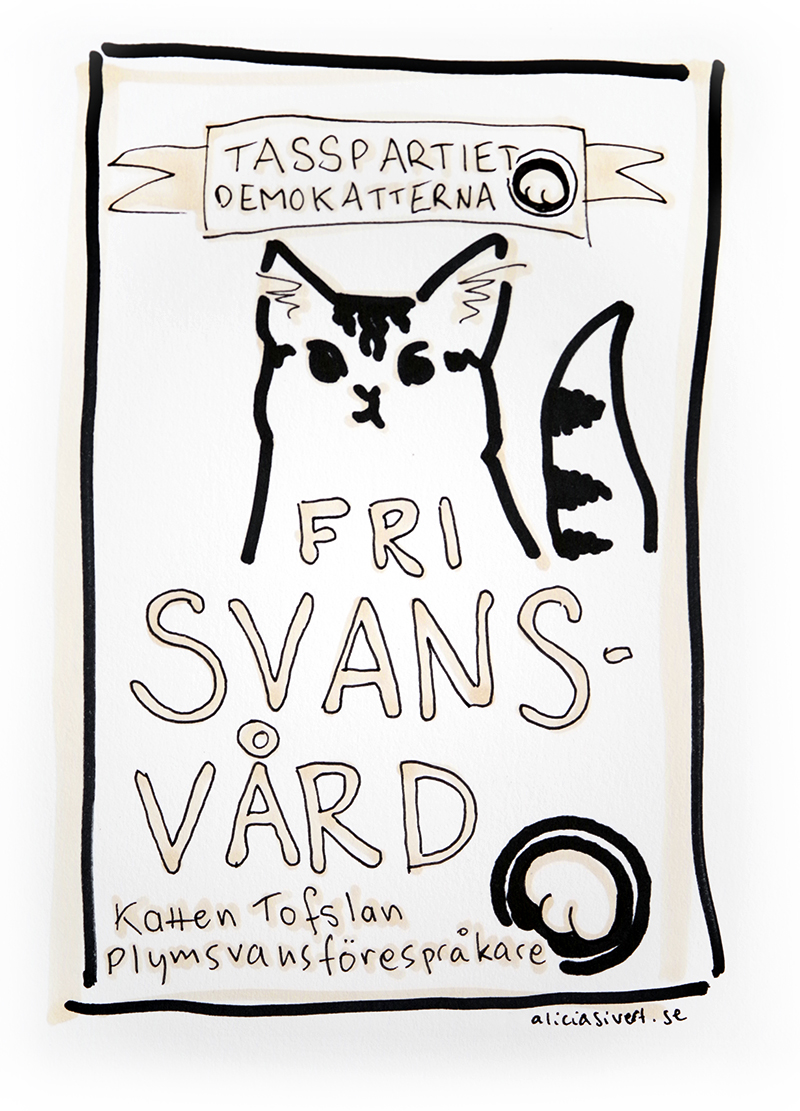 TASSPARTIET
DEMOKATTERNA
FRI
SVANS-
VÅRD
Katten Tofslan
plymsvansförespråkare
aliciasivert.se